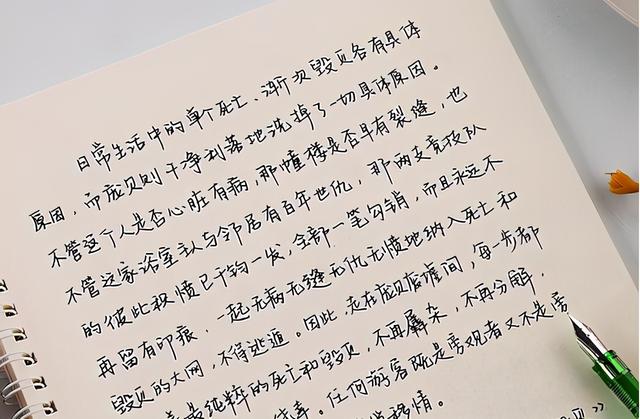 日常生活中的单个死亡、渐次毁灭各有具体
原因，而庞贝则干净利落地洗掉了一切具体原因。
不管这个人是否心脏有病，那幢楼是否早有裂缝，也
不管这家浴室主人与邻居有百年世仇，那两支竞技队
的彼此积愤已千钧一发，全部一笔勾销，而且永远不
再留有印痕，一起无病无缝无仇无愤地纳入死亡和
毁灭的大网，不得逃遁。因此，走在庞贝废墟间，每一步都
是最纯粹的死亡和毁灭，不再羼杂，不再分解，
任何游客既是旁观者又不是旁
移情。
》